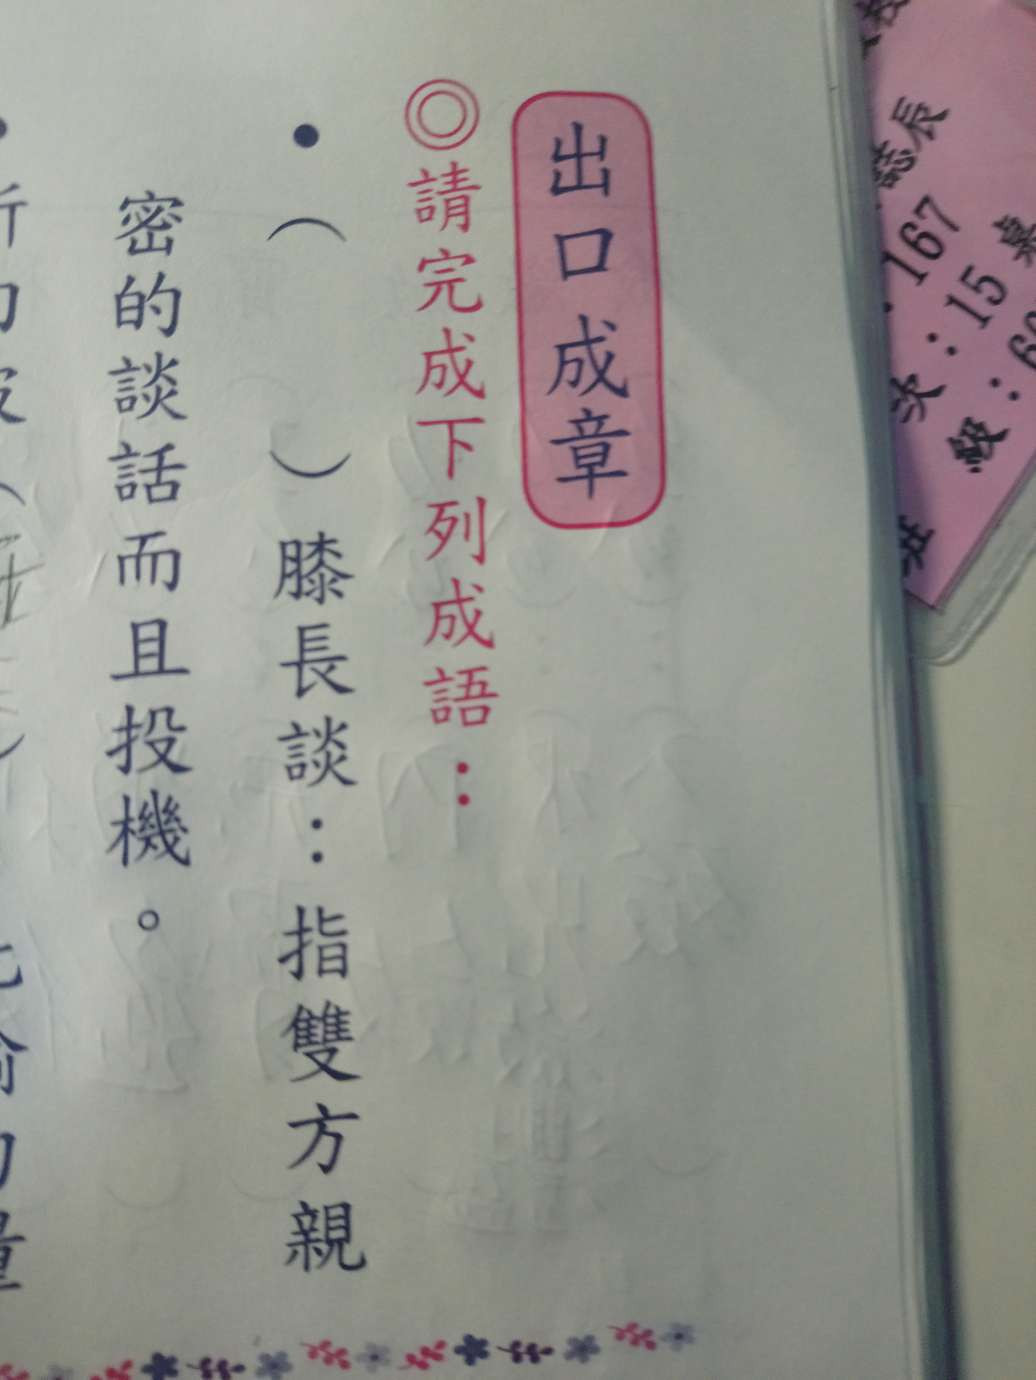 出口成章
◎請完成下列成語：
•（　　）膝長談：指雙方親
密的談話而且投機。
辰
167
:15